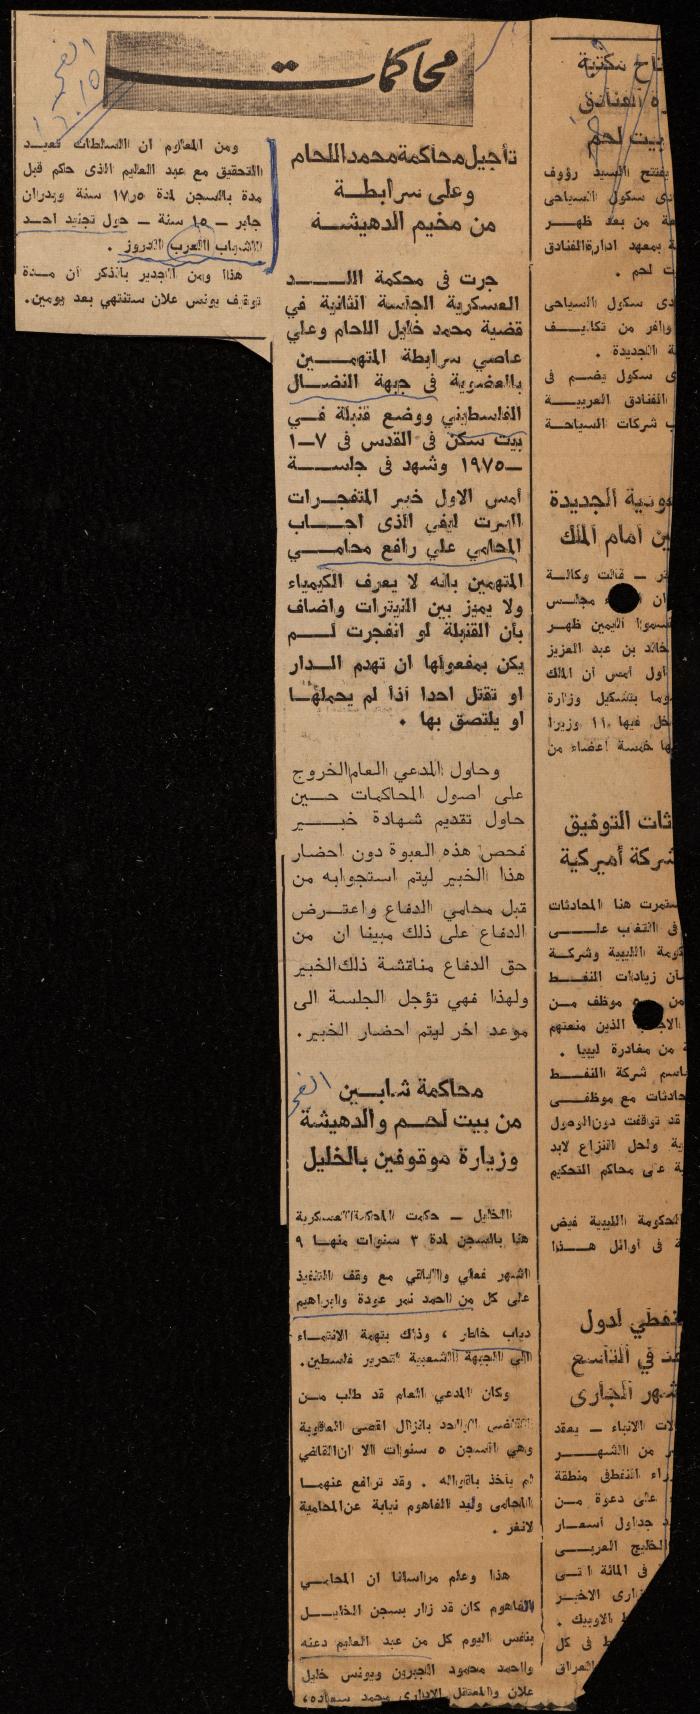 محاكمات
تأجيل محاكمة محمد اللحام
وعلى سرابطة
من مخيم الدهيشة
جرت في محكمة اللد
العسكرية الجلسة الثانية في
قضية محمد خليل اللحام وعلي
عاصي سرابطة المتهمين
بالعضوية في جبهة النضال
الفلسطيني ووضع قنبلة في
بيت سكن في القدس في ٧–١
–١٩٧٥ وشهد في جلسة
أمس الاول خبير المتفجرات
البرت ليفي الذى اجاب
المحامي علي رافع محامي
المتهمين بانه لا يعرف الكيمياء
ولا يميز بين النيترات واضاف
بأن القنبلة لو انفجرت لم
يكن بمفعولها ان تهدم الدار
او تقتل احدا اذا لم يحملها
او يلتصق بها .
وحاول المدعي العام الخروج
على اصول المحاكمات حين
حاول تقديم شهادة خبير
فحص هذه العبوة دون احضار
هذا الخبير ليتم استجوابه من
قبل محامي الدفاع واعترض
الدفاع على ذلك مبينا ان من
حق الدفاع مناقشة ذلك الخبير
ولهذا فهي تؤجل الجلسة الى
موعد اخر ليتم احضار الخبير .
الفجر
محاكمة شابين
من بيت لحم والدهيشة
وزيارة موقوفين بالخليل
الخليل – حكمت المحكمة العسكرية
هنا بالسجن لمدة ٣ سنوات منها ٩
اشهر فعلي والباقي مع وقف التنفيذ
على كل من احمد نمر عودة وابراهيم
دياب خاطر ، وذلك بتهمة الانتماء
الى الجبهة الشعبية لتحرير فلسطين.
وكان المدعي العام قد طلب من
القاضي بانزال اقصى العقوبة
وهي السجن ٥ سنوات الا ان القاضي
لم يأخذ باقواله . وقد ترافع عنهما
المحامي وليد الفاهوم نيابة عن المحامية
لانغر .
هذا وعلم مراسلنا ان المحامي
الفاهوم كان قد زار بسجن الخليل
بنفس اليوم كل من عبد العليم دعنه
واحمد محمود الجبرين ويونس خليل
علان والمعتقل الاداري محمد سعاده،
الفجر
ومن المعلوم ان السلطات تعيد
التحقيق مع عبد العليم الذى حكم قبل
مدة بالسجن لمدة ١٧٫٥ سنة وبدران
جابر – ١٥ سنة – حول تجنيد احد
الشباب العرب الدروز .
هذا ومن الجدير بالذكر أن مدة
توقيف يونس علان ستنتهي بعد يومين.
تاح مكتبة
ة الفنادق
بيت لحم
يفتتح السيد رؤوف
دى سكول السياحى
عة من بعد ظهر
ة بمعهد ادارة الفنادق
ت لحم .
دى سكول السياحى
وافر من تكاليف
ة الجديدة .
ى سكول يضم فى
الفنادق العربية
ب شركات السياحة
ودية الجديدة
ين أمام الملك
ر – قالت وكالة
ان مجالس
قسموا اليمين ظهر
خالد بن عبد العزيز
أول أمس أن الملك
وما بتشكيل وزارة
خل فيها ١١ وزيرا
ها خمسة اعضاء من
ثات التوفيق
شركة أميركية
ستمرت هنا المحادثات
فى التغلب على
كومة الليبية وشركة
أن زيادات النفط
من موظف من
الاجانب الذين منعتهم
ة من مغادرة ليبيا .
باسم شركة النفط
حادثات مع موظفى
قد توقفت دون الوصول
ية ولحل النزاع لابد
ة على محاكم التحكيم
لحكومة الليبية فيض
ة فى أوائل هذا
نفطي لدول
قد في التاسع
شهر الجارى
لات الانباء – يعقد
ر من الشهر
زراء النفط فى منطقة
على دعوة من
د جداول أسعار
الخليج العربى
فى المائة التى
زارى الاخير
ط الاوبيك .
ط فى كل
العراق